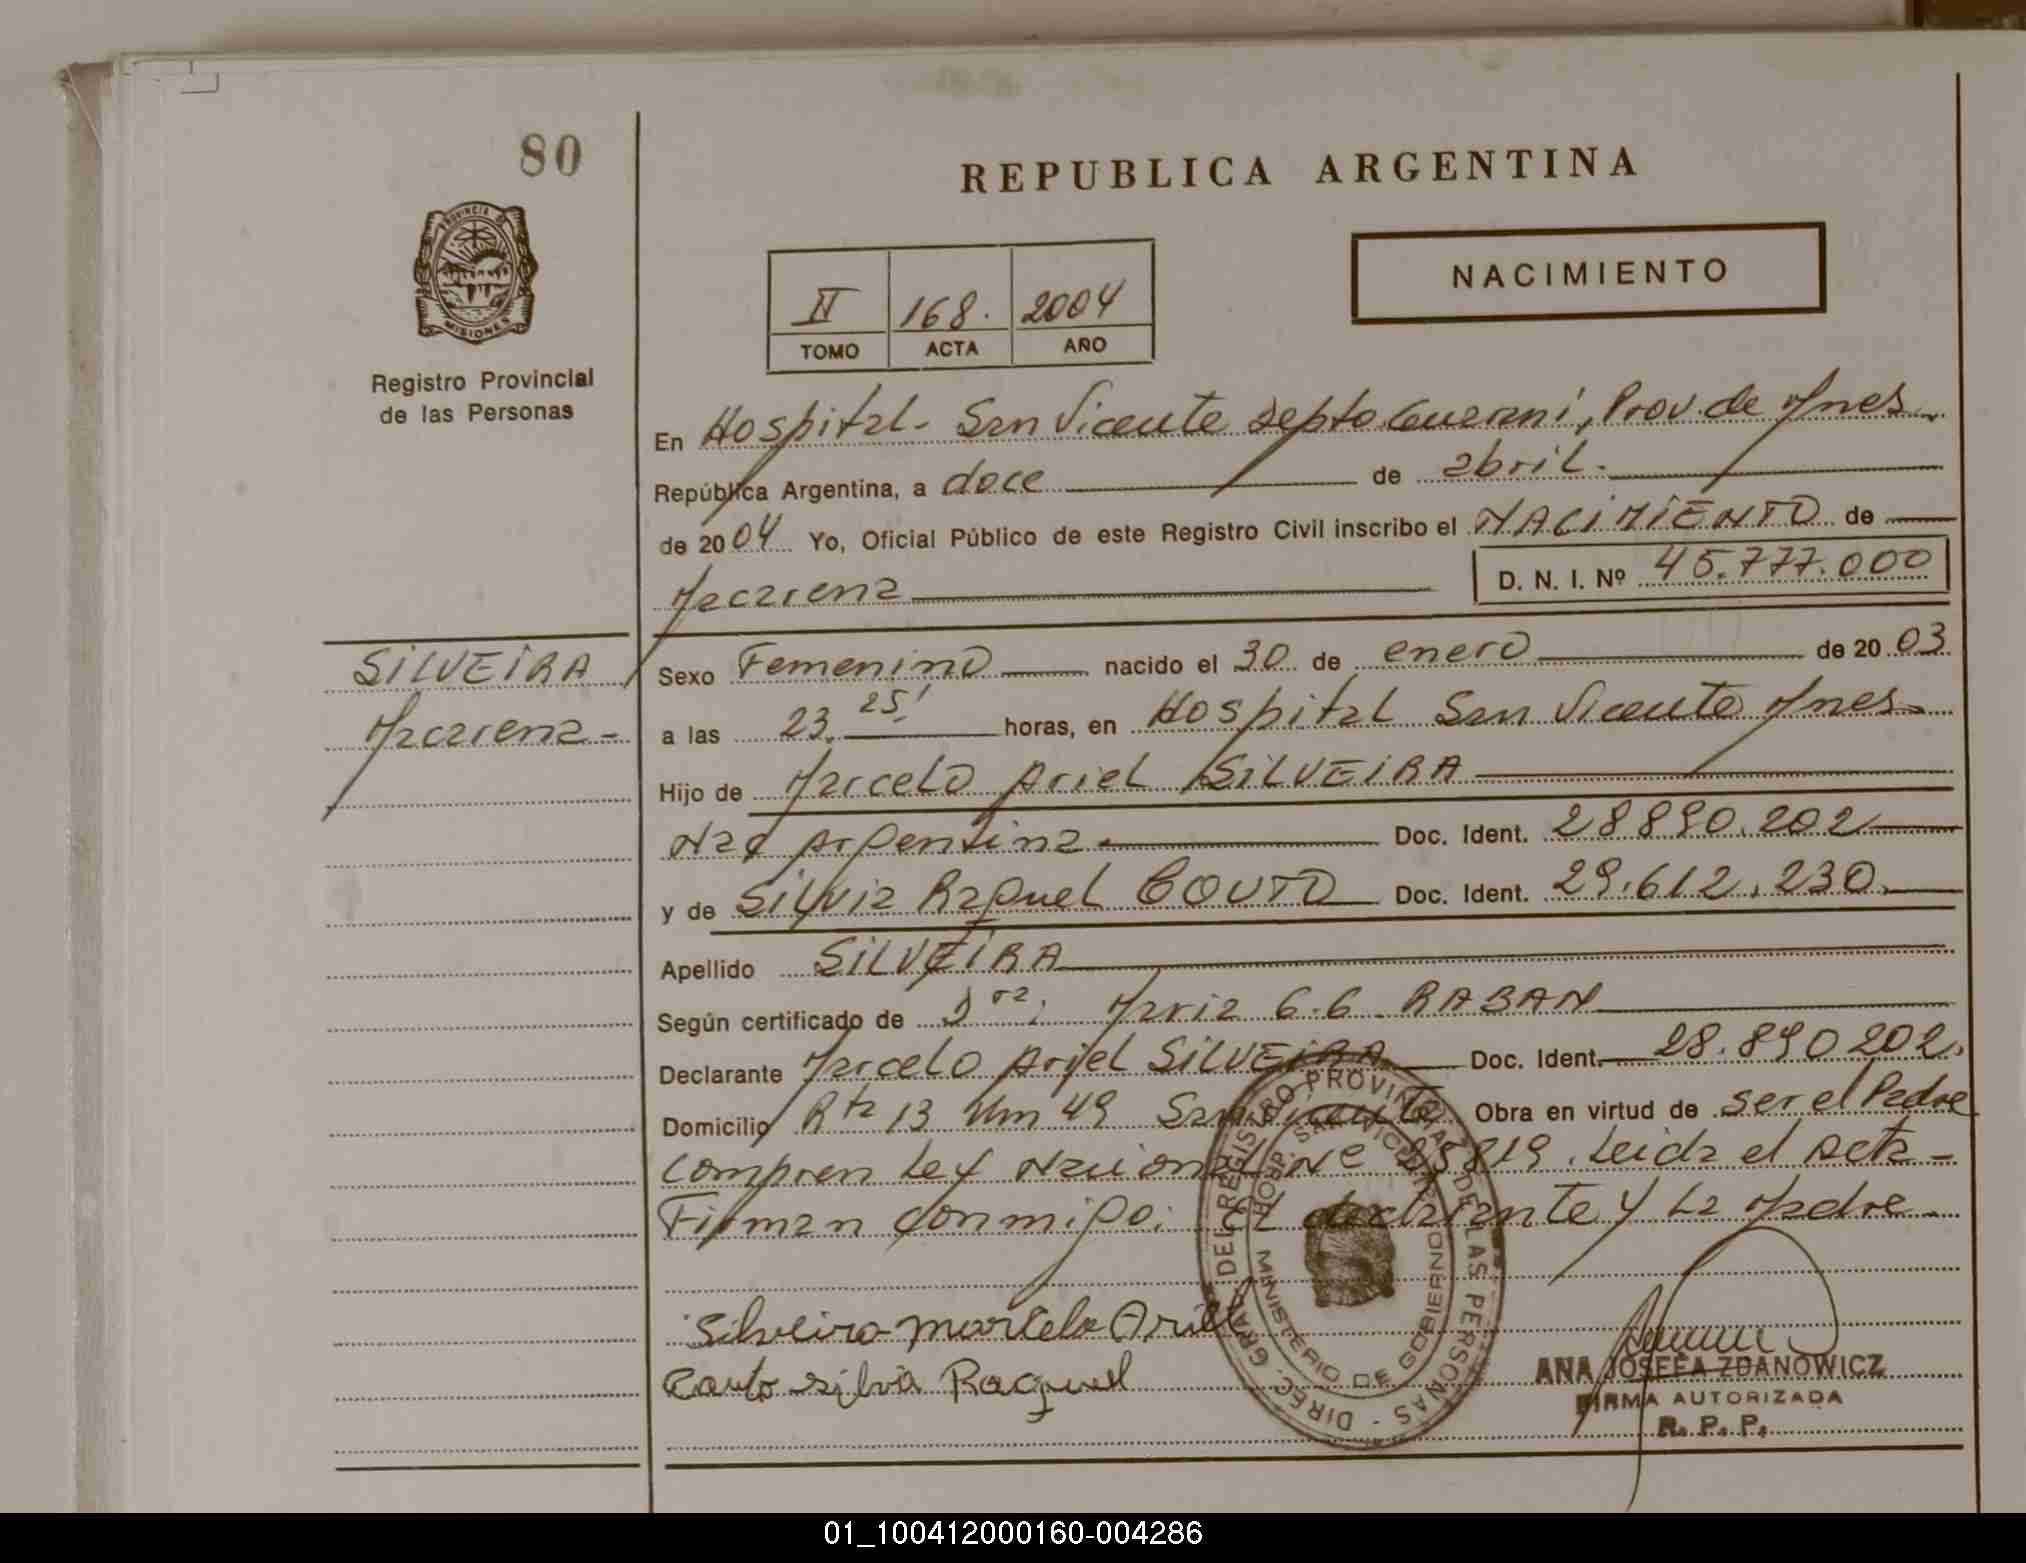 80
REPUBLICA ARGENTINA
PROVINCIA DE
MISIONES
Registro Provincial
de las Personas
NACIMIENTO
II 168. 2004
TOMO ACTA AÑO
En Hospital - San Vicente Depto Guarani, Prov. de Mnes
República Argentina, a doce de abril.
de 2004 Yo, Oficial Público de este Registro Civil inscribo el NACIMIENTO de
Macarena D. N. I. Nº 45.777.000
SILVEIRA
Macarena -
Sexo Femenino nacido el 30 de enero de 2003
a las 23. 25' horas, en Hospital San Vicente Mnes.
Hijo de Marcelo Ariel SILVEIRA
Nac Argentina Doc. Ident. 28890.202
y de Silvia Raquel COUTO Doc. Ident. 29.612.230.
Apellido SILVEIRA
Según certificado de Dra: Maria G.G. RABAN
Declarante Marcelo Ariel SILVEIRA Doc. Ident. 28.890202.
Domicilio Rta 13 Km 49 San Vicente Obra en virtud de ser el Padre
Compren Ley Nacional Nº 25819. Leida el Acta -
Firman conmigo: El declarante y La Madre.
Silveira Marcelo Ariel
Couto Silvia Raquel
DIREC. GRAL. DEL REGISTRO PROVINCIAL DE LAS PERSONAS -
HOSP. SAN VICENTE
MINISTERIO DE GOBIERNO
ANA JOSEFA ZDANOWICZ
FIRMA AUTORIZADA
R. P. P.
01_100412000160-004286